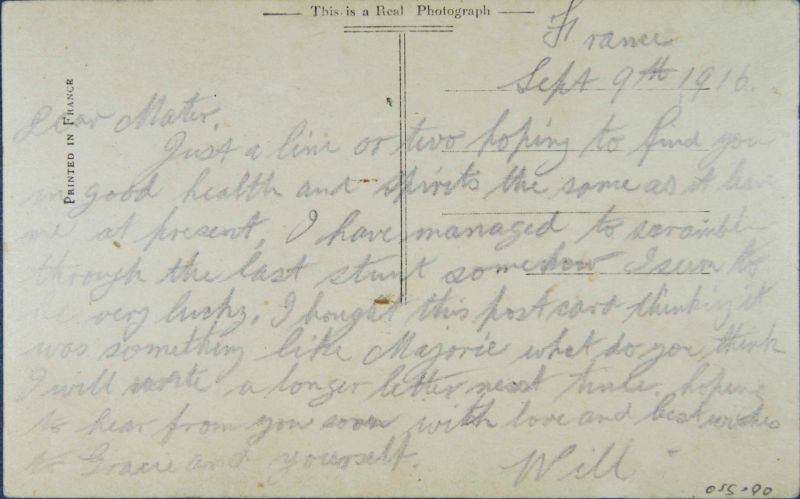 This is a Real Photograph
PRINTED IN FRANCE
France
Sept 9th 1916.
Dear Mater,
Just a line or two hoping to find you
in good health and spirits the same as it leaves
me at present, I have managed to scramble
through the last stunt somehow I seem to
be very lucky. I bought this post card thinking it
was something like Majorie what do you think
I will write a longer letter next time. hoping
to hear from you soon with love and best wishes
to Gracie and yourself.
Will
055-90